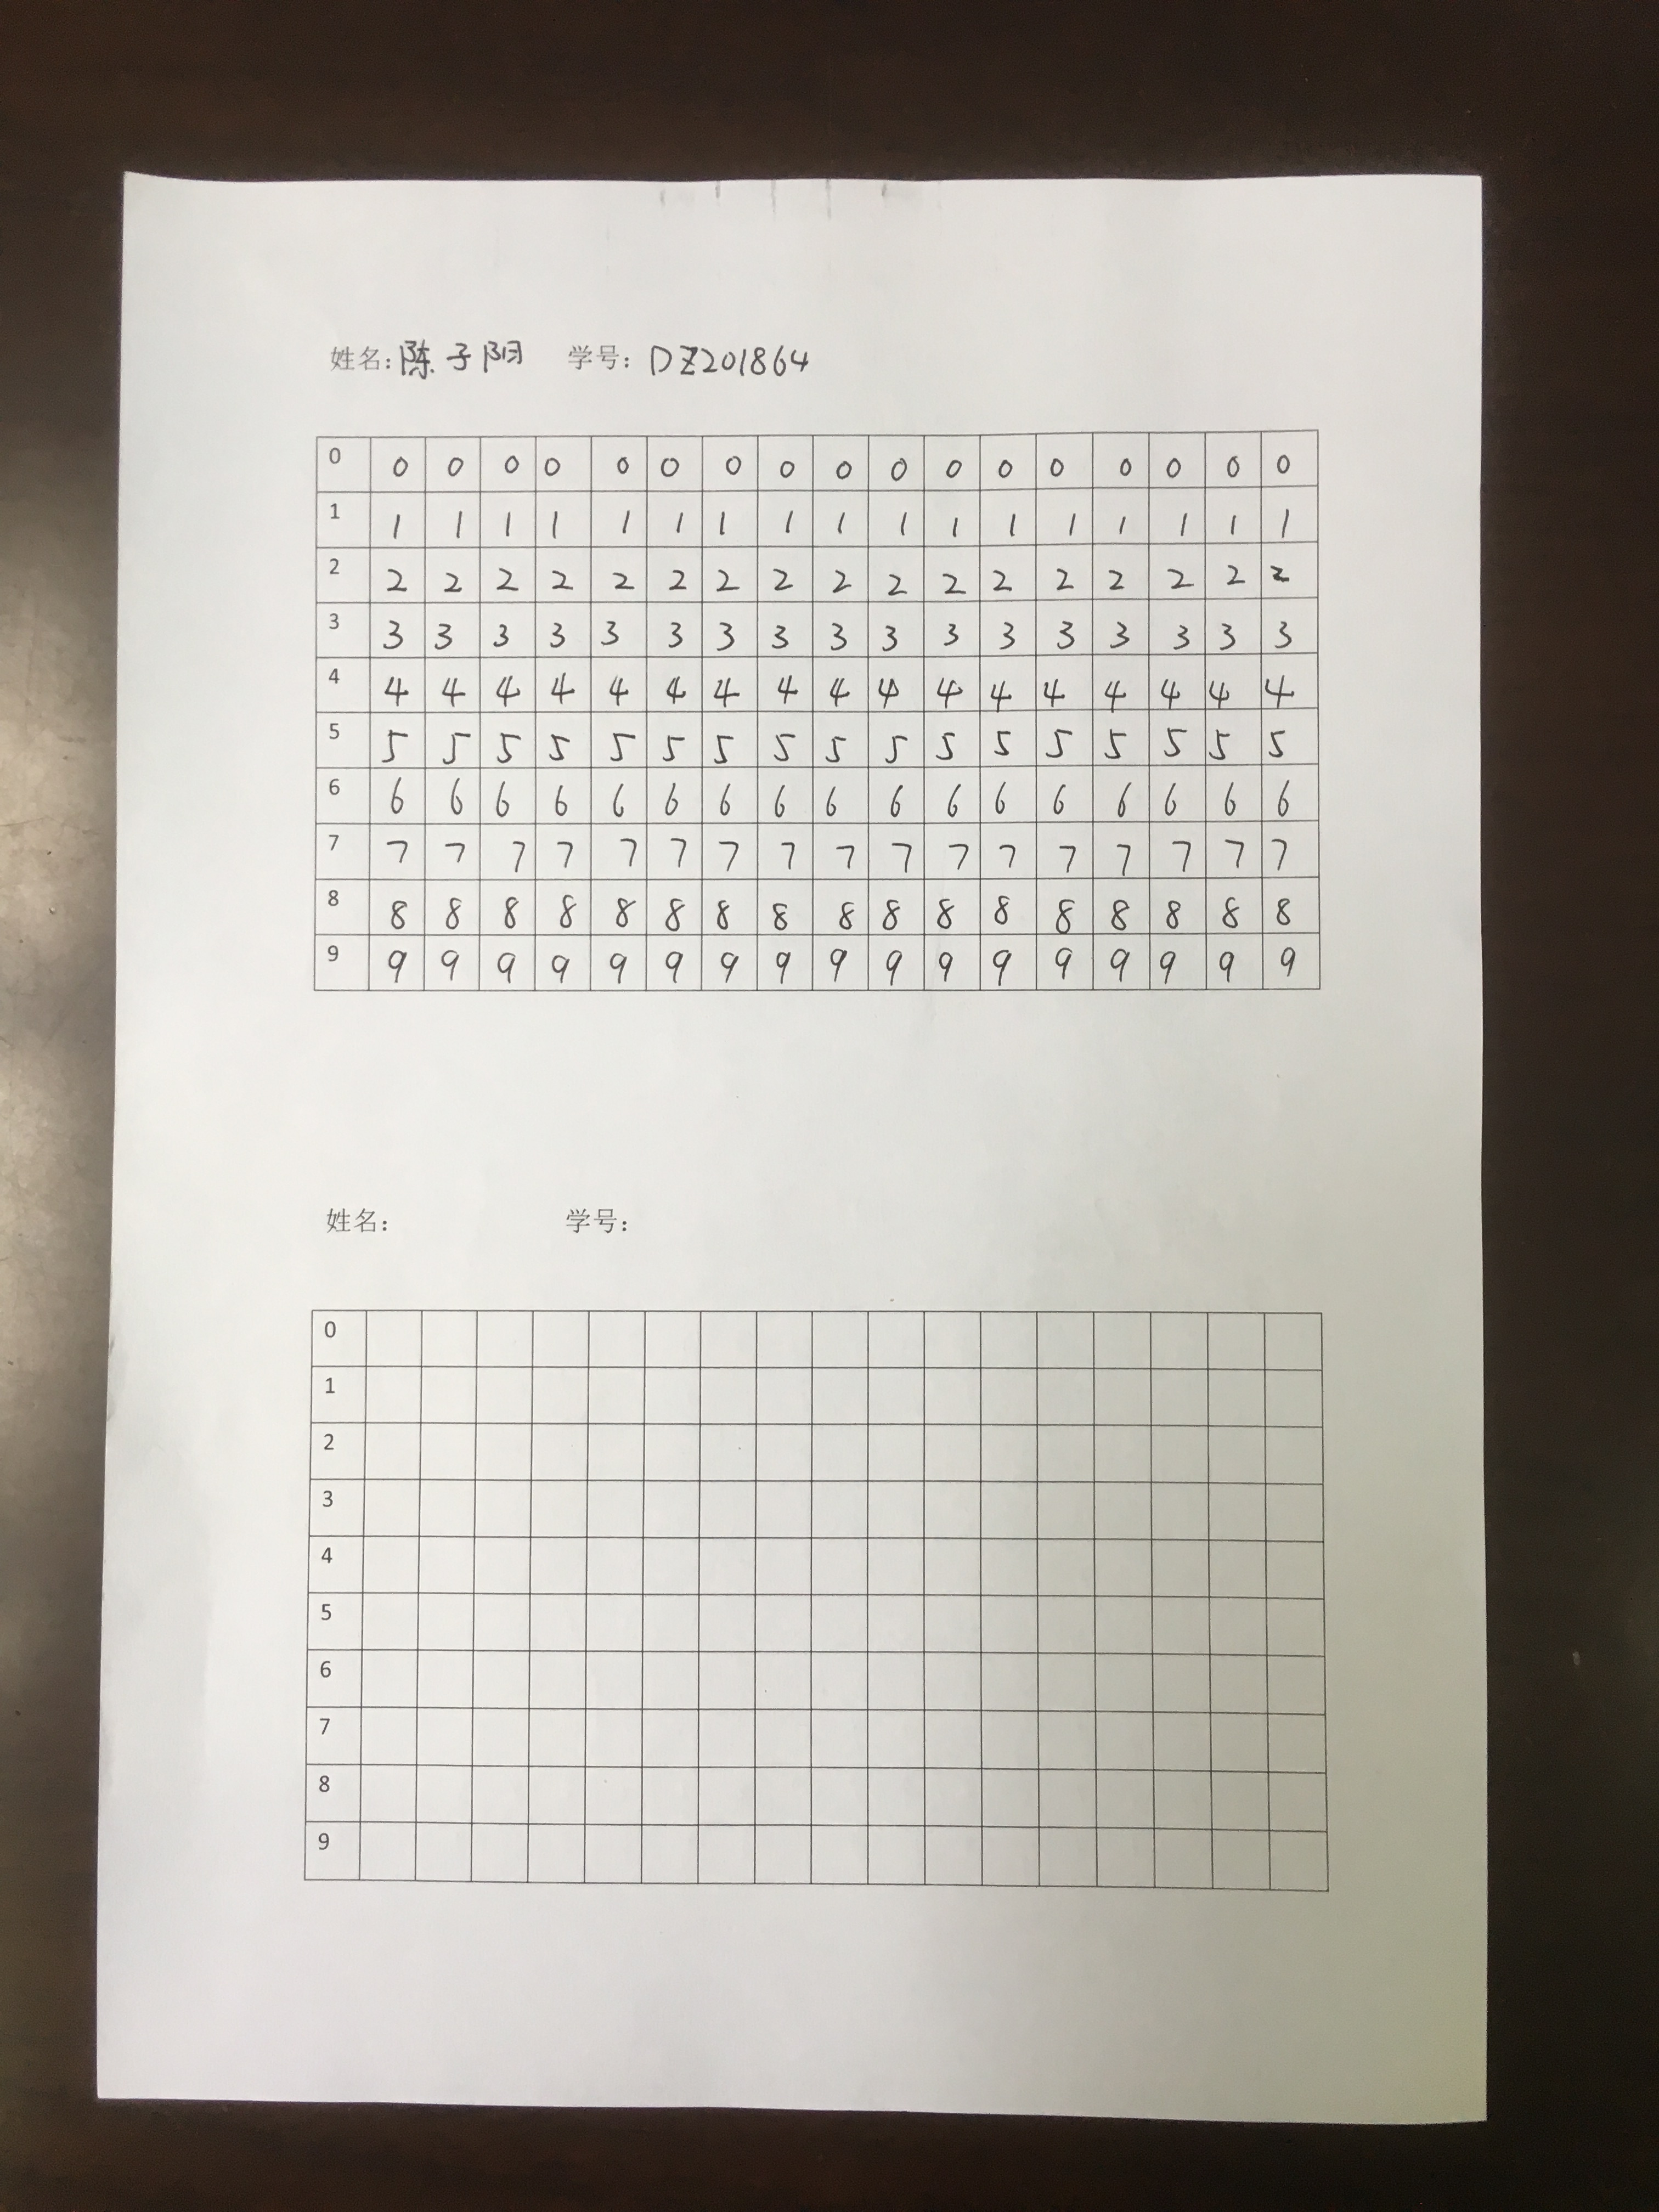 姓名:陈子阳 学号: DZ201864
0 0 0 0 0 0 0 0 0 0 0 0 0 0 0 0 0 0
1 1 1 1 1 1 1 1 1 1 1 1 1 1 1 1 1 1
2 2 2 2 2 2 2 2 2 2 2 2 2 2 2 2 2 2
3 3 3 3 3 3 3 3 3 3 3 3 3 3 3 3 3 3
4 4 4 4 4 4 4 4 4 4 4 4 4 4 4 4 4 4
5 5 5 5 5 5 5 5 5 5 5 5 5 5 5 5 5 5
6 6 6 6 6 6 6 6 6 6 6 6 6 6 6 6 6 6
7 7 7 7 7 7 7 7 7 7 7 7 7 7 7 7 7 7
8 8 8 8 8 8 8 8 8 8 8 8 8 8 8 8 8 8
9 9 9 9 9 9 9 9 9 9 9 9 9 9 9 9 9 9
姓名: 学号:
0
1
2
3
4
5
6
7
8
9